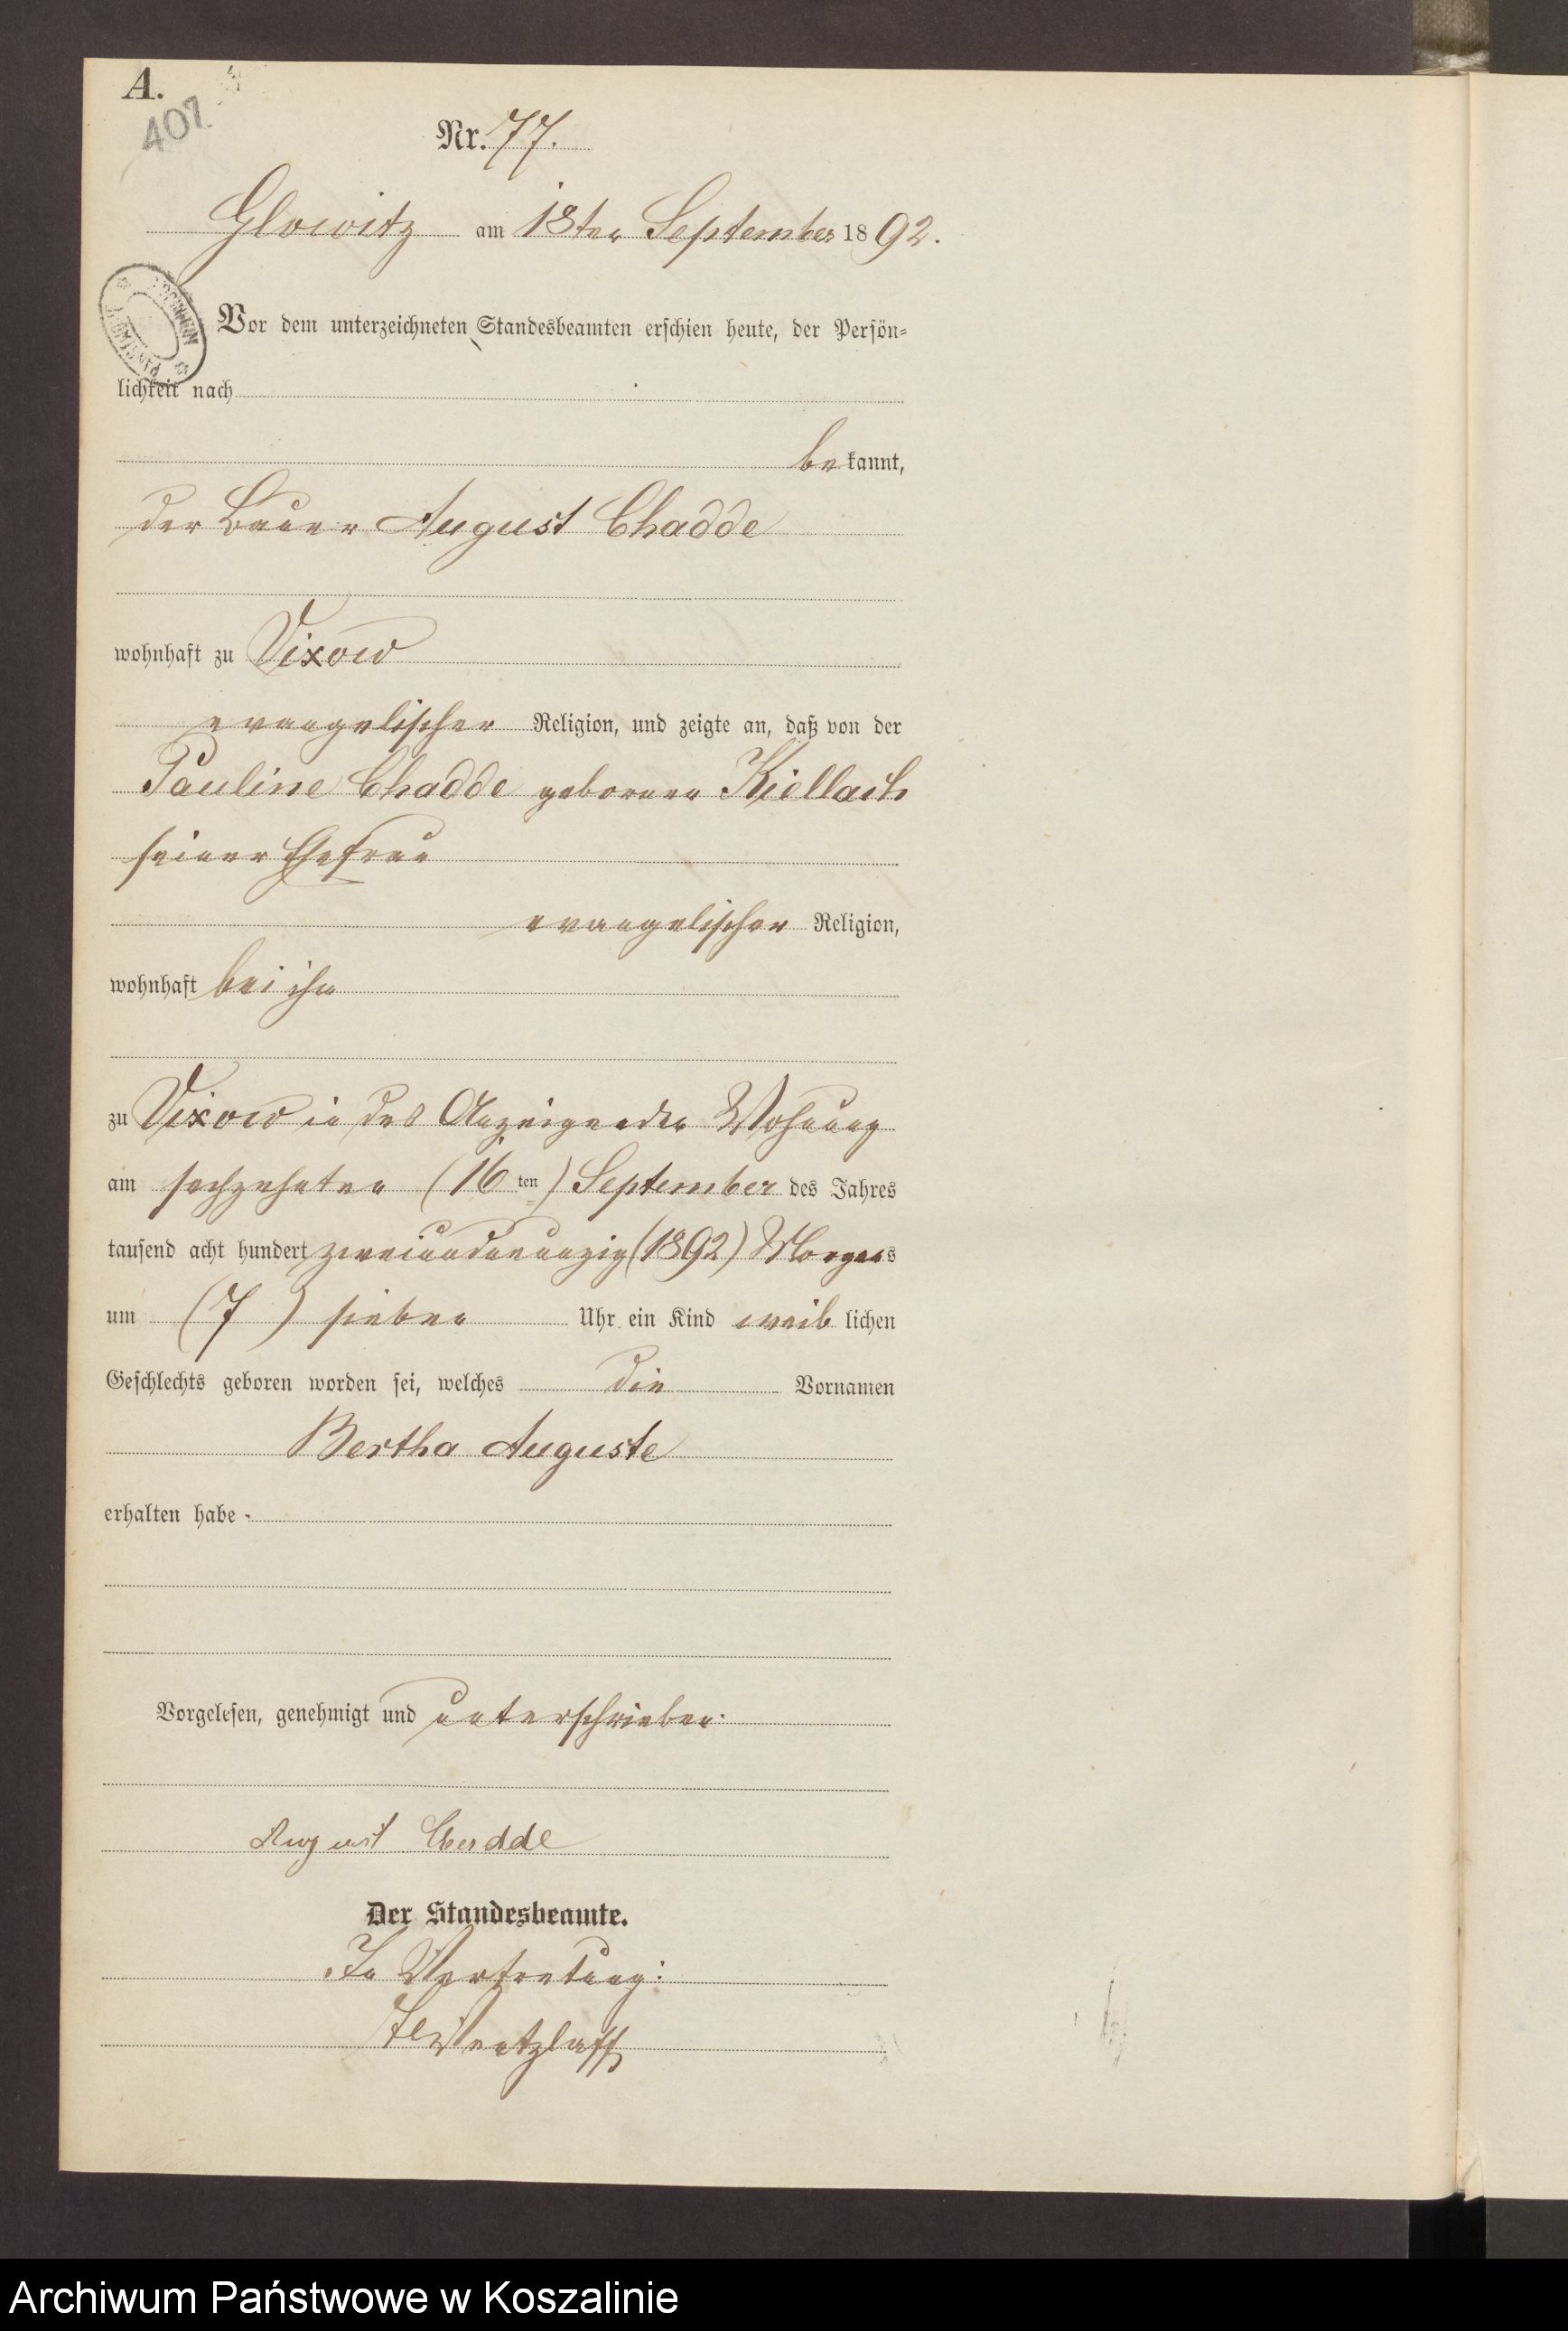 A.
407.
Nr. 77.
Glowitz am 18ten September 1892.
Vor dem unterzeichneten Standesbeamten erschien heute, der Persön=
lichkeit nach
bekannt,
der Bauer August Chadde
wohnhaft zu Vixow
evangelischer Religion, und zeigte an, daß von der
Pauline Chadde geborenen Kiellach
seiner Ehefrau
evangelischer Religion,
wohnhaft bei ihm
zu Vixow in des Anzeigenden Wohnung
am sechzehnten (16ten) September des Jahres
tausend acht hundert zweiundneunzig (1892) Morgens
um (7) sieben Uhr ein Kind weiblichen
Geschlechts geboren worden sei, welches die Vornamen
Bertha Auguste
erhalten habe.
Vorgelesen, genehmigt und unterschrieben.
August
Der Standesbeamte.
In Vertretung:
Archiwum Państwowe w Koszalinie